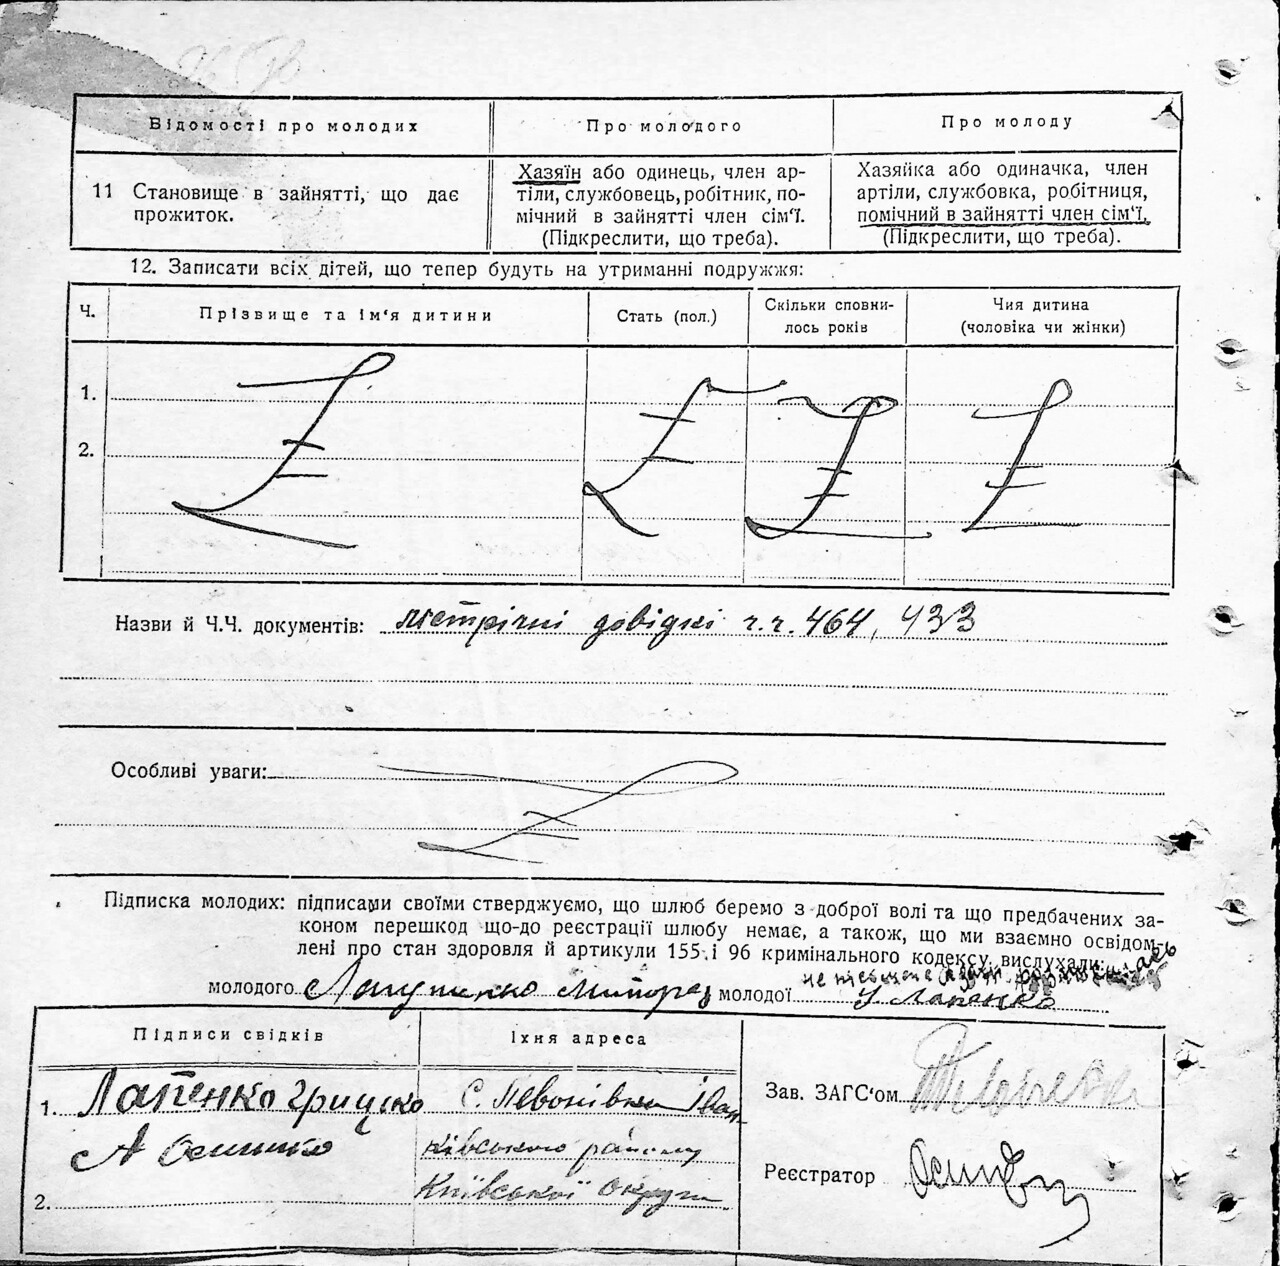 Відомості про молодих
Про молодого
Про молоду
11 Становище в зайнятті, що дає
прожиток.
Хазяїн або одинець, член ар-
тіли, службовець, робітник, по-
мічний в зайнятті член сім'ї.
(Підкреслити, що треба).
Хазяйка або одиначка, член
артіли, службовка, робітниця,
помічний в зайнятті член сім'ї.
(Підкреслити, що треба).
12. Записати всіх дітей, що тепер будуть на утриманні подружжя:
Ч.
Прізвище та ім'я дитини
Стать (пол.)
Скільки сповни-
лось років
Чия дитина
(чоловіка чи жінки)
1.
2.
Назви й Ч.Ч. документів: метрічні довідкі ч.ч. 464, 433
Особливі уваги:
Підписка молодих: підписами своїми стверджуємо, що шлюб беремо з доброї волі та що предбачених за-
коном перешкод що-до реєстрації шлюбу немає, а також, що ми взаємно освідом-
лені про стан здоровля й артикули 155 і 96 кримінального кодексу вислухали:
молодого молодої Лапенко
Підписи свідків
Їхня адреса
1. Лапенко Грицко
С. Іван
ківського району
Київської округи
2.
Зав. ЗАГС'ом
Реєстратор